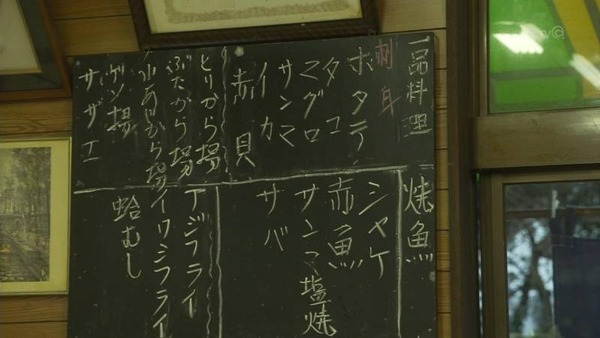 一品料理
刺身
ホタテ
タコ
マグロ
サンマ
イカ
赤貝
とりから揚
ぶたから揚
小あじから揚
ゲソ揚
サザエ
焼魚
シャケ
赤魚
サンマ塩焼
サバ
アジフライ
イワシフライ
蛤むし